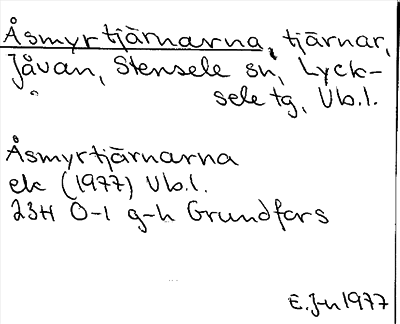 Åsmyrtjärnarna, tjärnar,
Jåvan, Stensele sn, Lyck-
" sele tg, Vb.l.
Åsmyrtjärnarna
ek (1977) Vb.l.
23H Ö-1 g-h Grundfors
E. J-n 1977